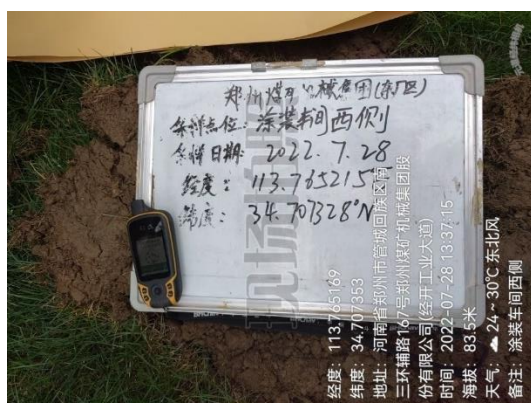 郑州煤矿机械集团(东厂区)
采样点位:涂装车间西侧
采样日期:2022.7.28
经度:113.765215°
纬度:34.707328°N
现场拍照
经度:113.765169
纬度:34.707353
地址:河南省郑州市管城回族区南
三环辅路167号郑州煤矿机械集团股
份有限公司(经开工业大道)
时间:2022-07-28 13:37:15
海拔:83.5米
天气:24~30℃ 东北风
备注:涂装车间西侧